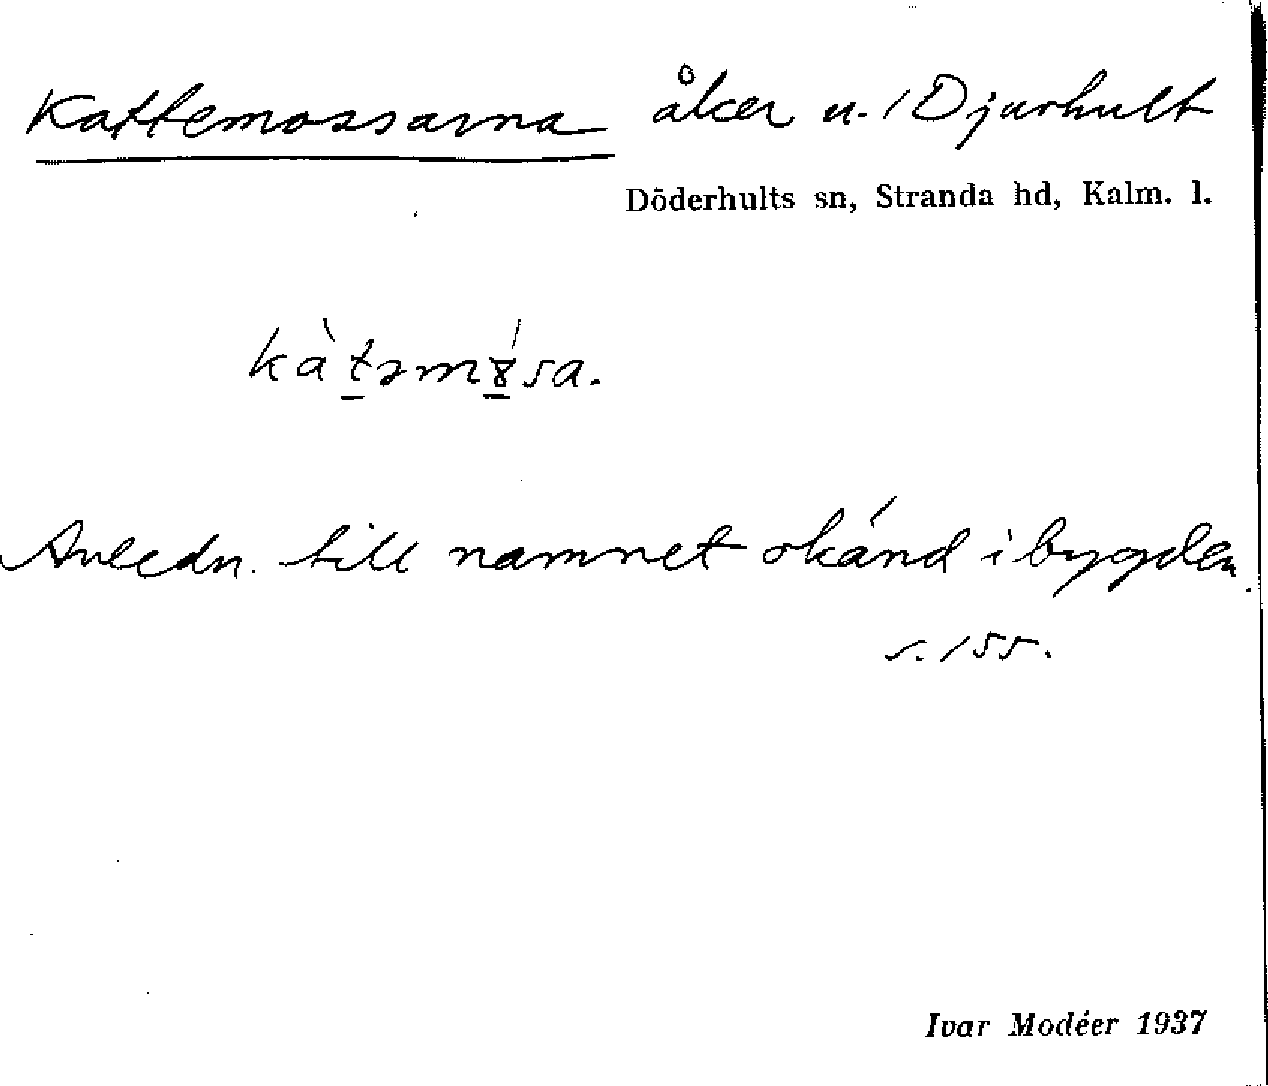 Kattemossarna åker u. Djurhult
Döderhults sn, Stranda hd, Kalm. l.
kàt̠əmɤ̠́sa.
Anledn. till namnet okänd i bygden.
s. 155.
Ivar Modéer 1937